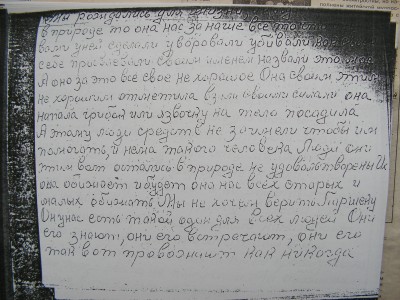 Мы родились для жизни
в природе то она нас за наше все
вами у ней сделали уворовали убивали
себе присвоили своим именем назвали это
А оно за это все свое не хорошее Она своим этим
не хорошим отметила взяла своими силами она
напала грибок или язвочку на тело посадила
А этому люди средств не зачинели чтобы им
помогать, и нема такого человека Люди они
этим вот остались в природе не удовольтворены Их
она обижает и будет она нас всех старых и
малых обижать Мы не хочем верить Паршеку
Он у нас есть такой один для всех людей Они
его знают, они его встречают, они его
так вот провожают как никогда